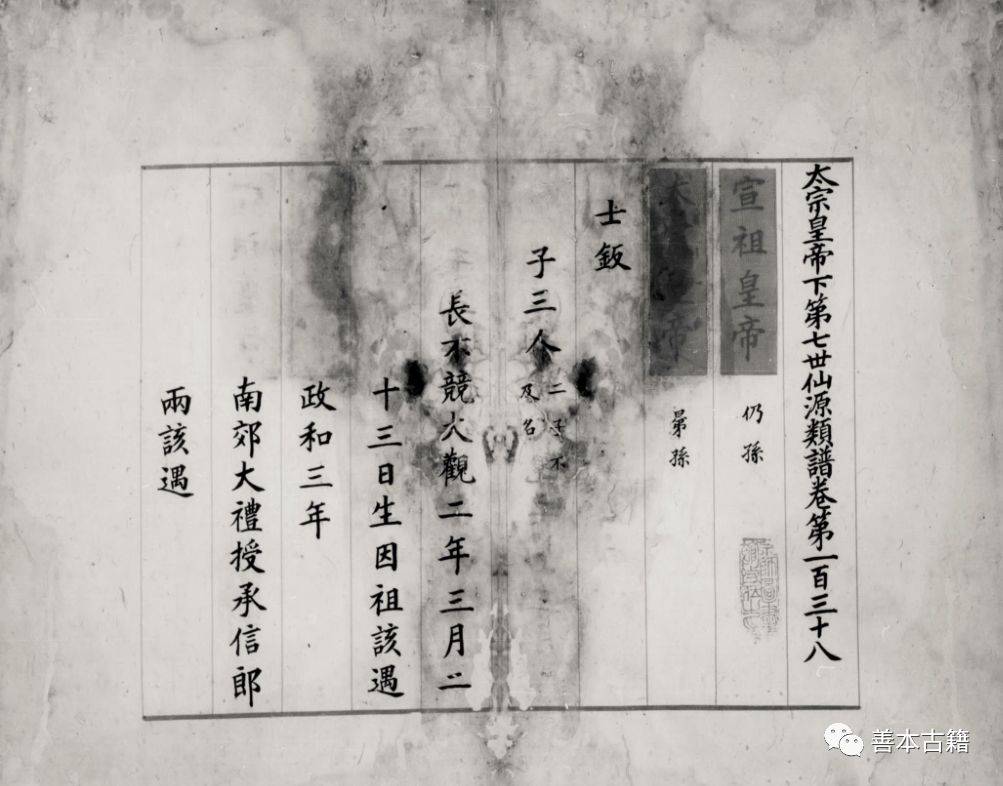 太宗皇帝下第七世仙源類譜卷第一百三十八
宣祖皇帝
仍孫
太宗皇帝
曐孫
士鈑
子三人
二子不
及名
長不競大觀二年三月二
十三日生因祖該遇
政和三年
南郊大禮授承信郎
兩該遇
善本古籍